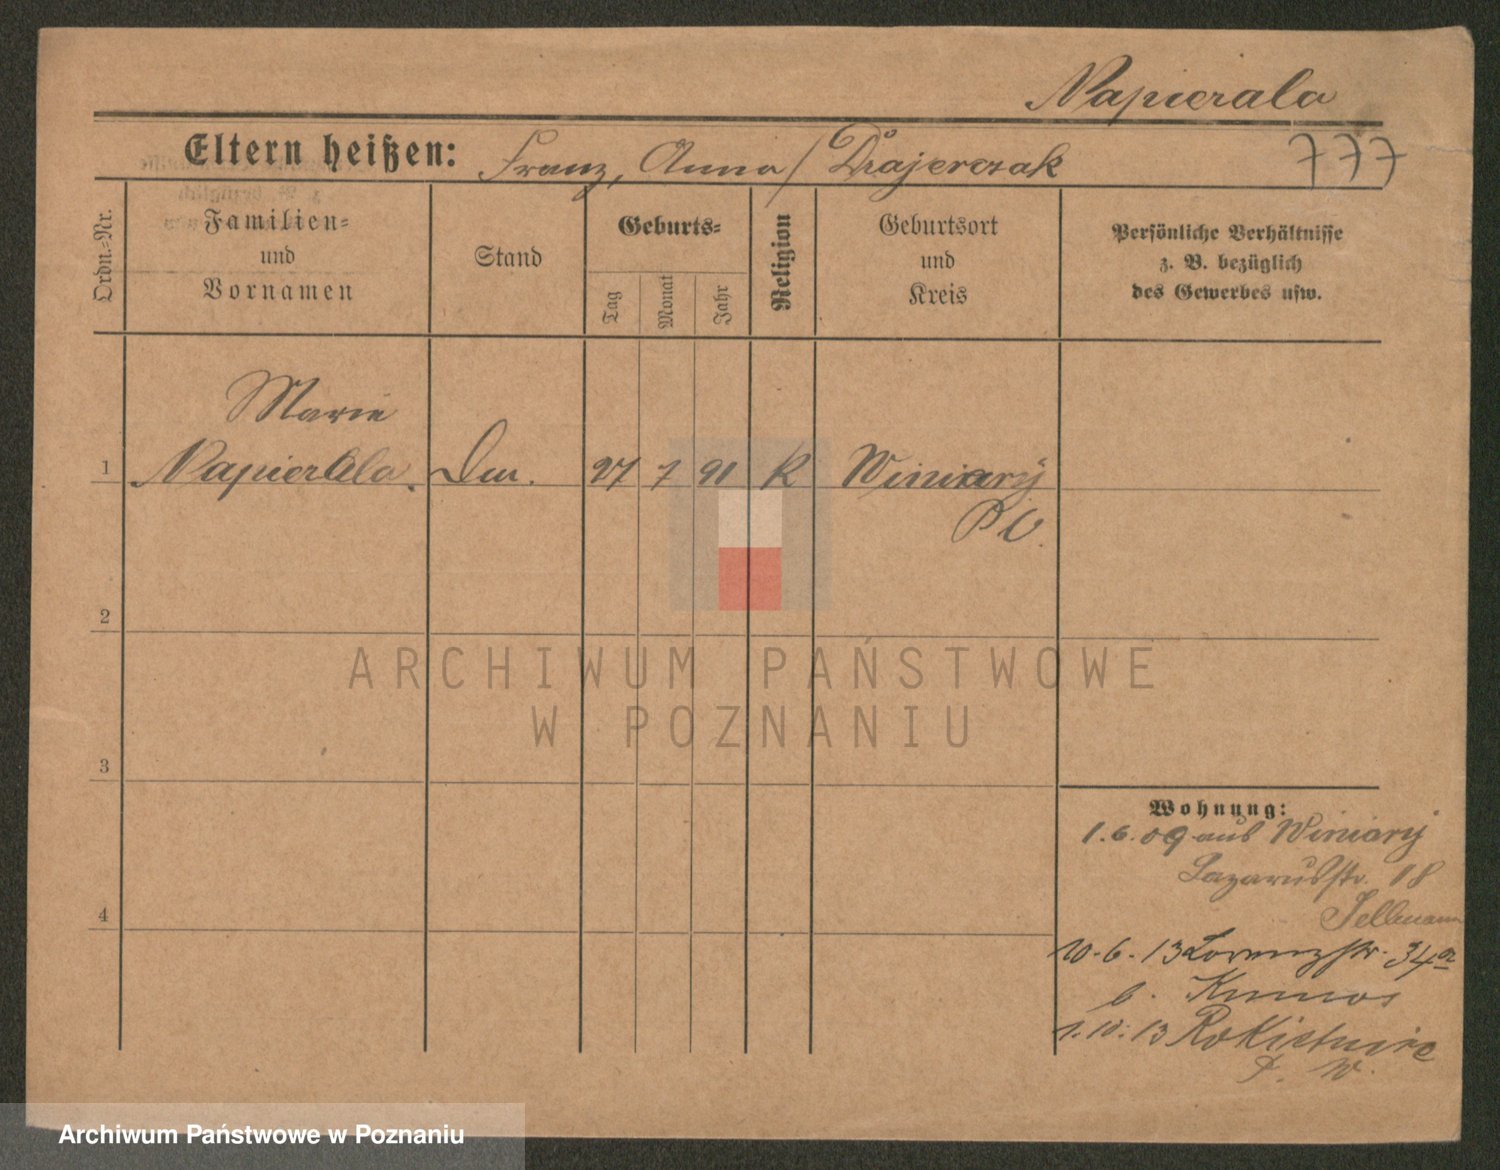 Napierala
Eltern heißen: Franz, Anna / Drajerczak
777
Ordn.-Nr.
Familien-
und
Vornamen
Stand
Geburts-
Tag
Monat
Jahr
Religion
Geburtsort
und
Kreis
Persönliche Verhältnisse
z. B. bezüglich
des Gewerbes usw.
Marie
1 Napierala. 27 7 91 K Winiary
P
2
3
4
ARCHIWUM PAŃSTWOWE
W POZNANIU
Wohnung:
1.6.09 aus Winiary
Lazarusstr. 18
10.6.13 Lorenzstr. 34a
b.
1.10.13 Rokietnice
P. W.
Archiwum Państwowe w Poznaniu